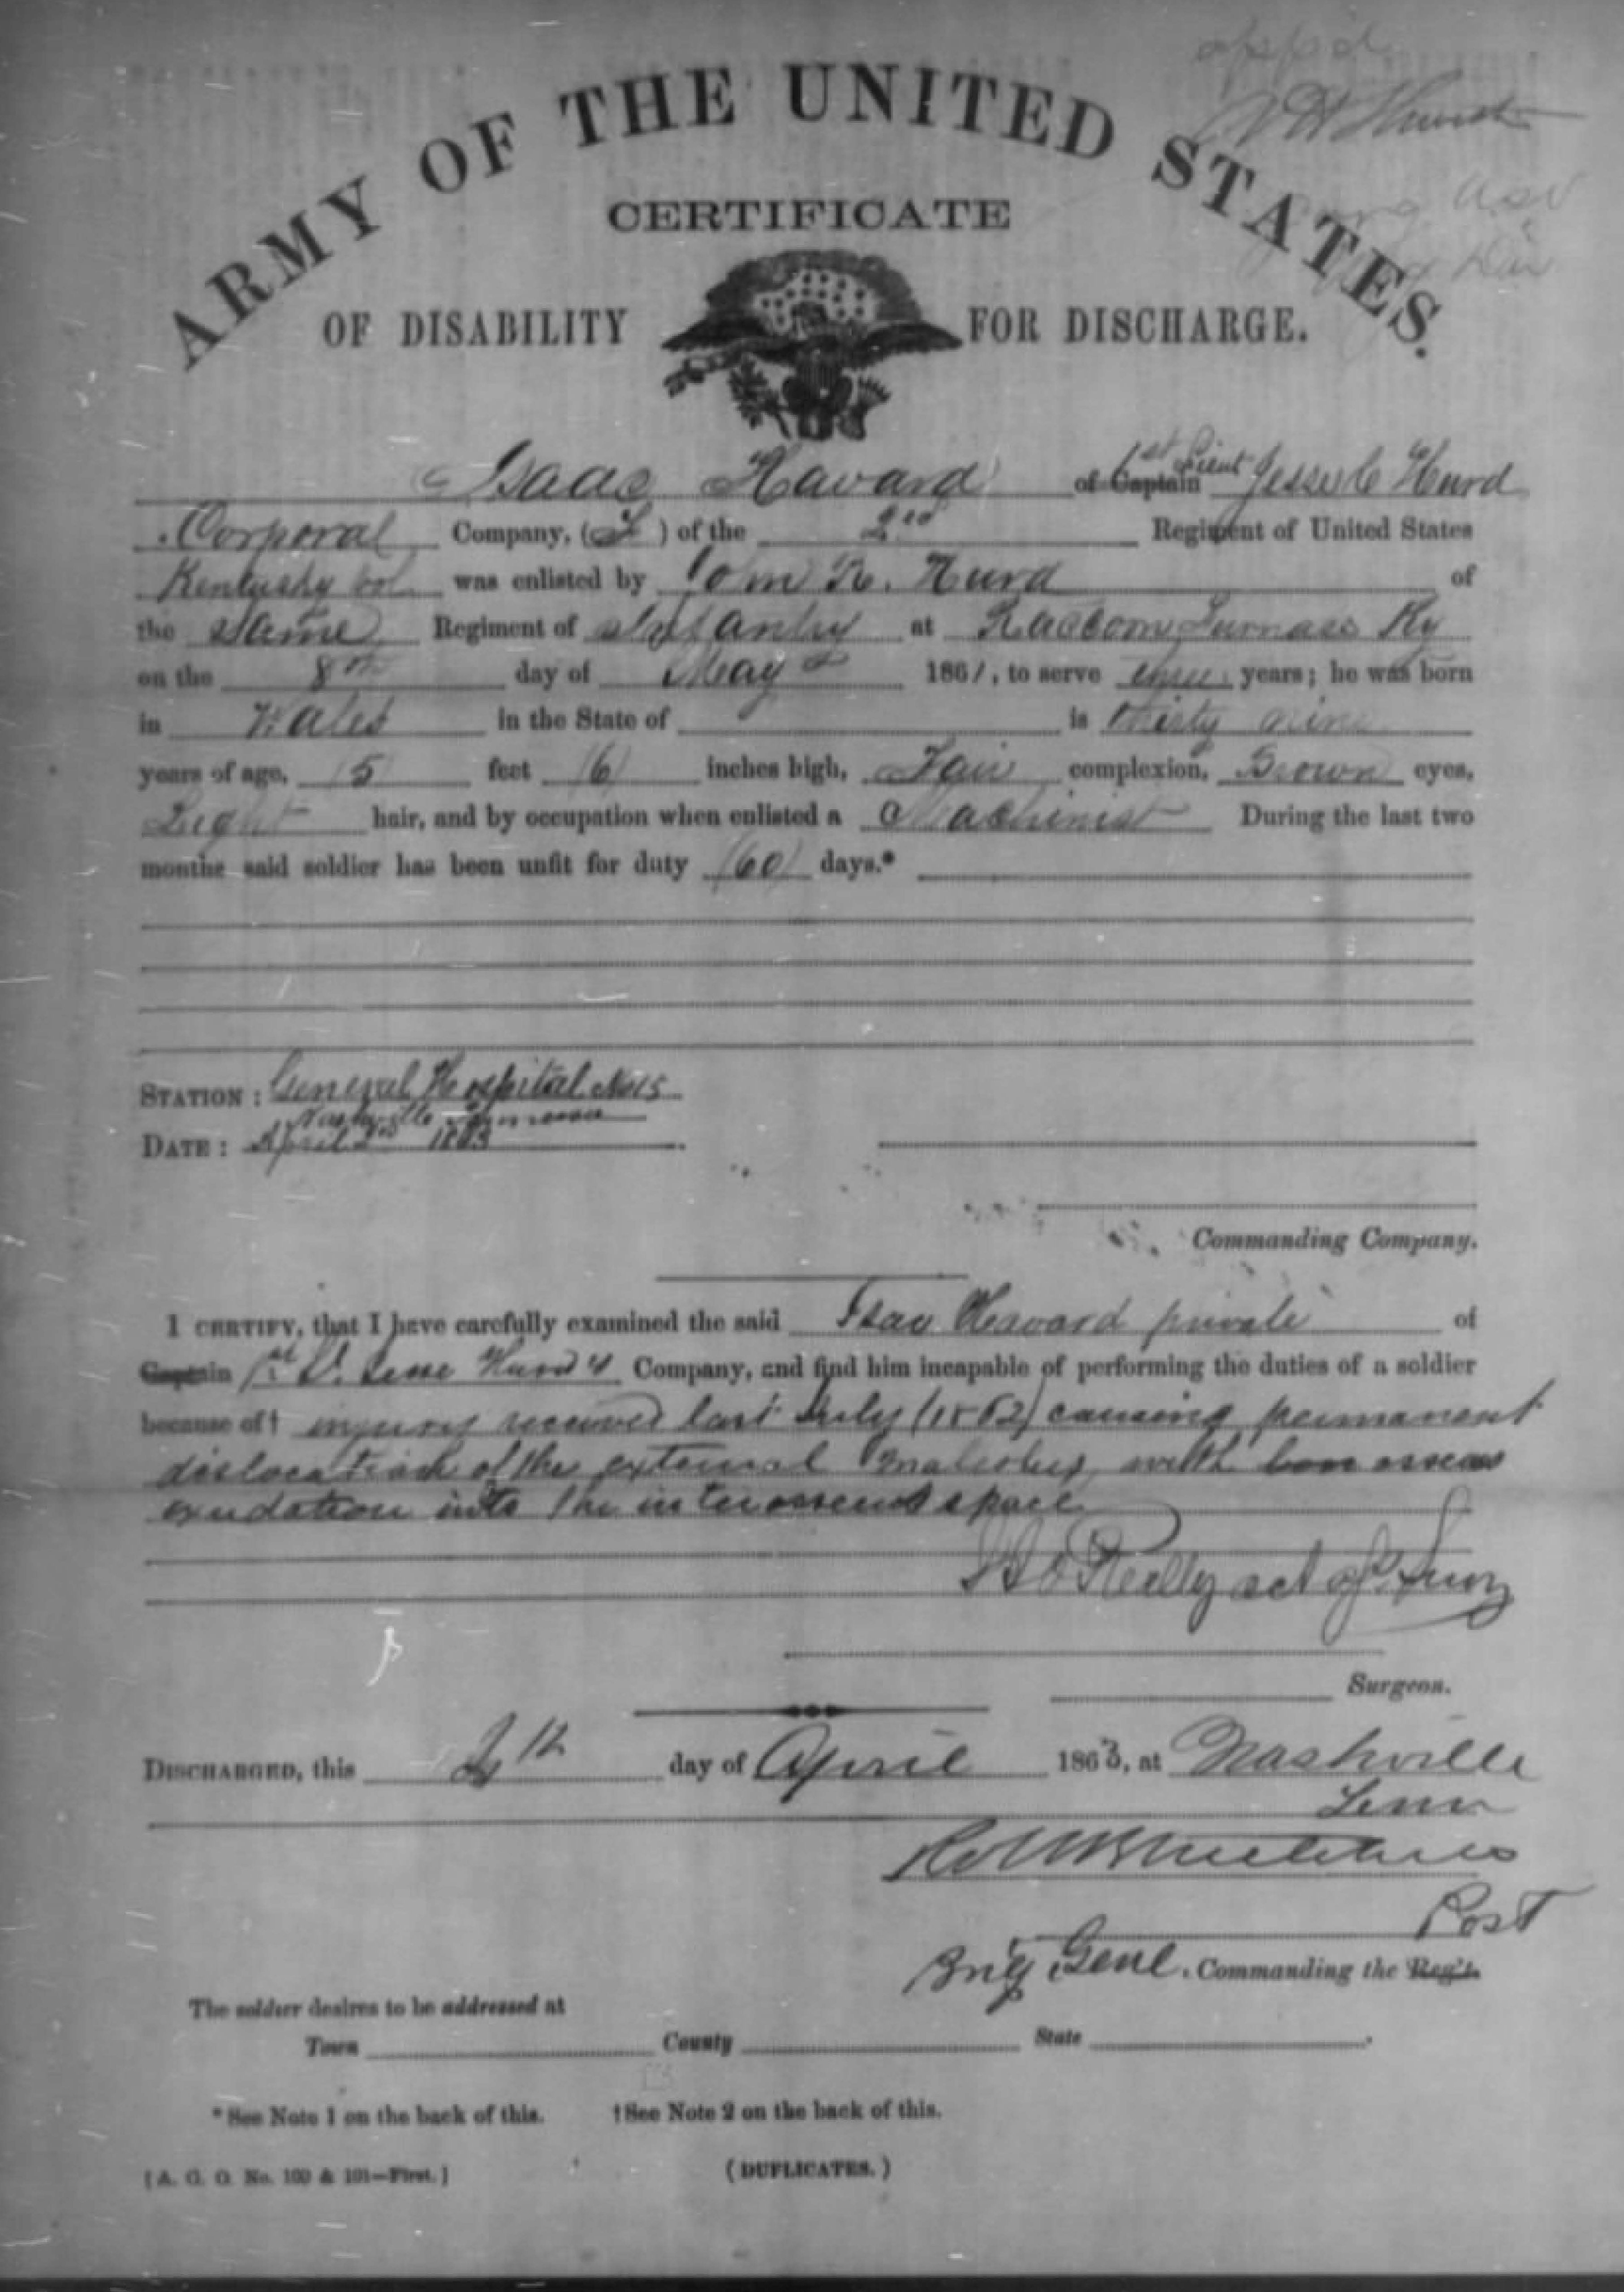 app'd
ARMY OF THE UNITED STATES.
CERTIFICATE
OF DISABILITY FOR DISCHARGE.
Isaac Havard of Captain 1st Lieut Jesse C Hurd
Corporal Company, ( ) of the 2nd Regiment of United States
Kentucky Vol was enlisted by John R. Hurd of
the same Regiment of Infantry at Raccoon Furnace Ky
on the 8th day of May 1861, to serve three years; he was born
in Wales in the State of is thirty nine
years of age, 5 feet 6 inches high, Fair complexion, Brown eyes,
Light hair, and by occupation when enlisted a Machinist During the last two
months said soldier has been unfit for duty 60 days.*
STATION: General Hospital No 15
Nashville Tennessee
DATE: April 2nd 1863
Commanding Company.
I CERTIFY, that I have carefully examined the said Isaac Havard private of
Captain 1st Lt. Jesse Hurd's Company, and find him incapable of performing the duties of a soldier
because of† injury received last July (1862) causing permanent
dislocation of the external malleolus, with osseous
exudation into the interosseous space
Reilly act Surg
Surgeon.
DISCHARGED, this day of April 1863, at Nashville
Tenn
Post
Brig Genl. Commanding the Reg't.
The soldier desires to be addressed at
Town County State .
*See Note 1 on the back of this. †See Note 2 on the back of this.
[A. G. O. No. 100 & 101—First.] (DUPLICATES.)